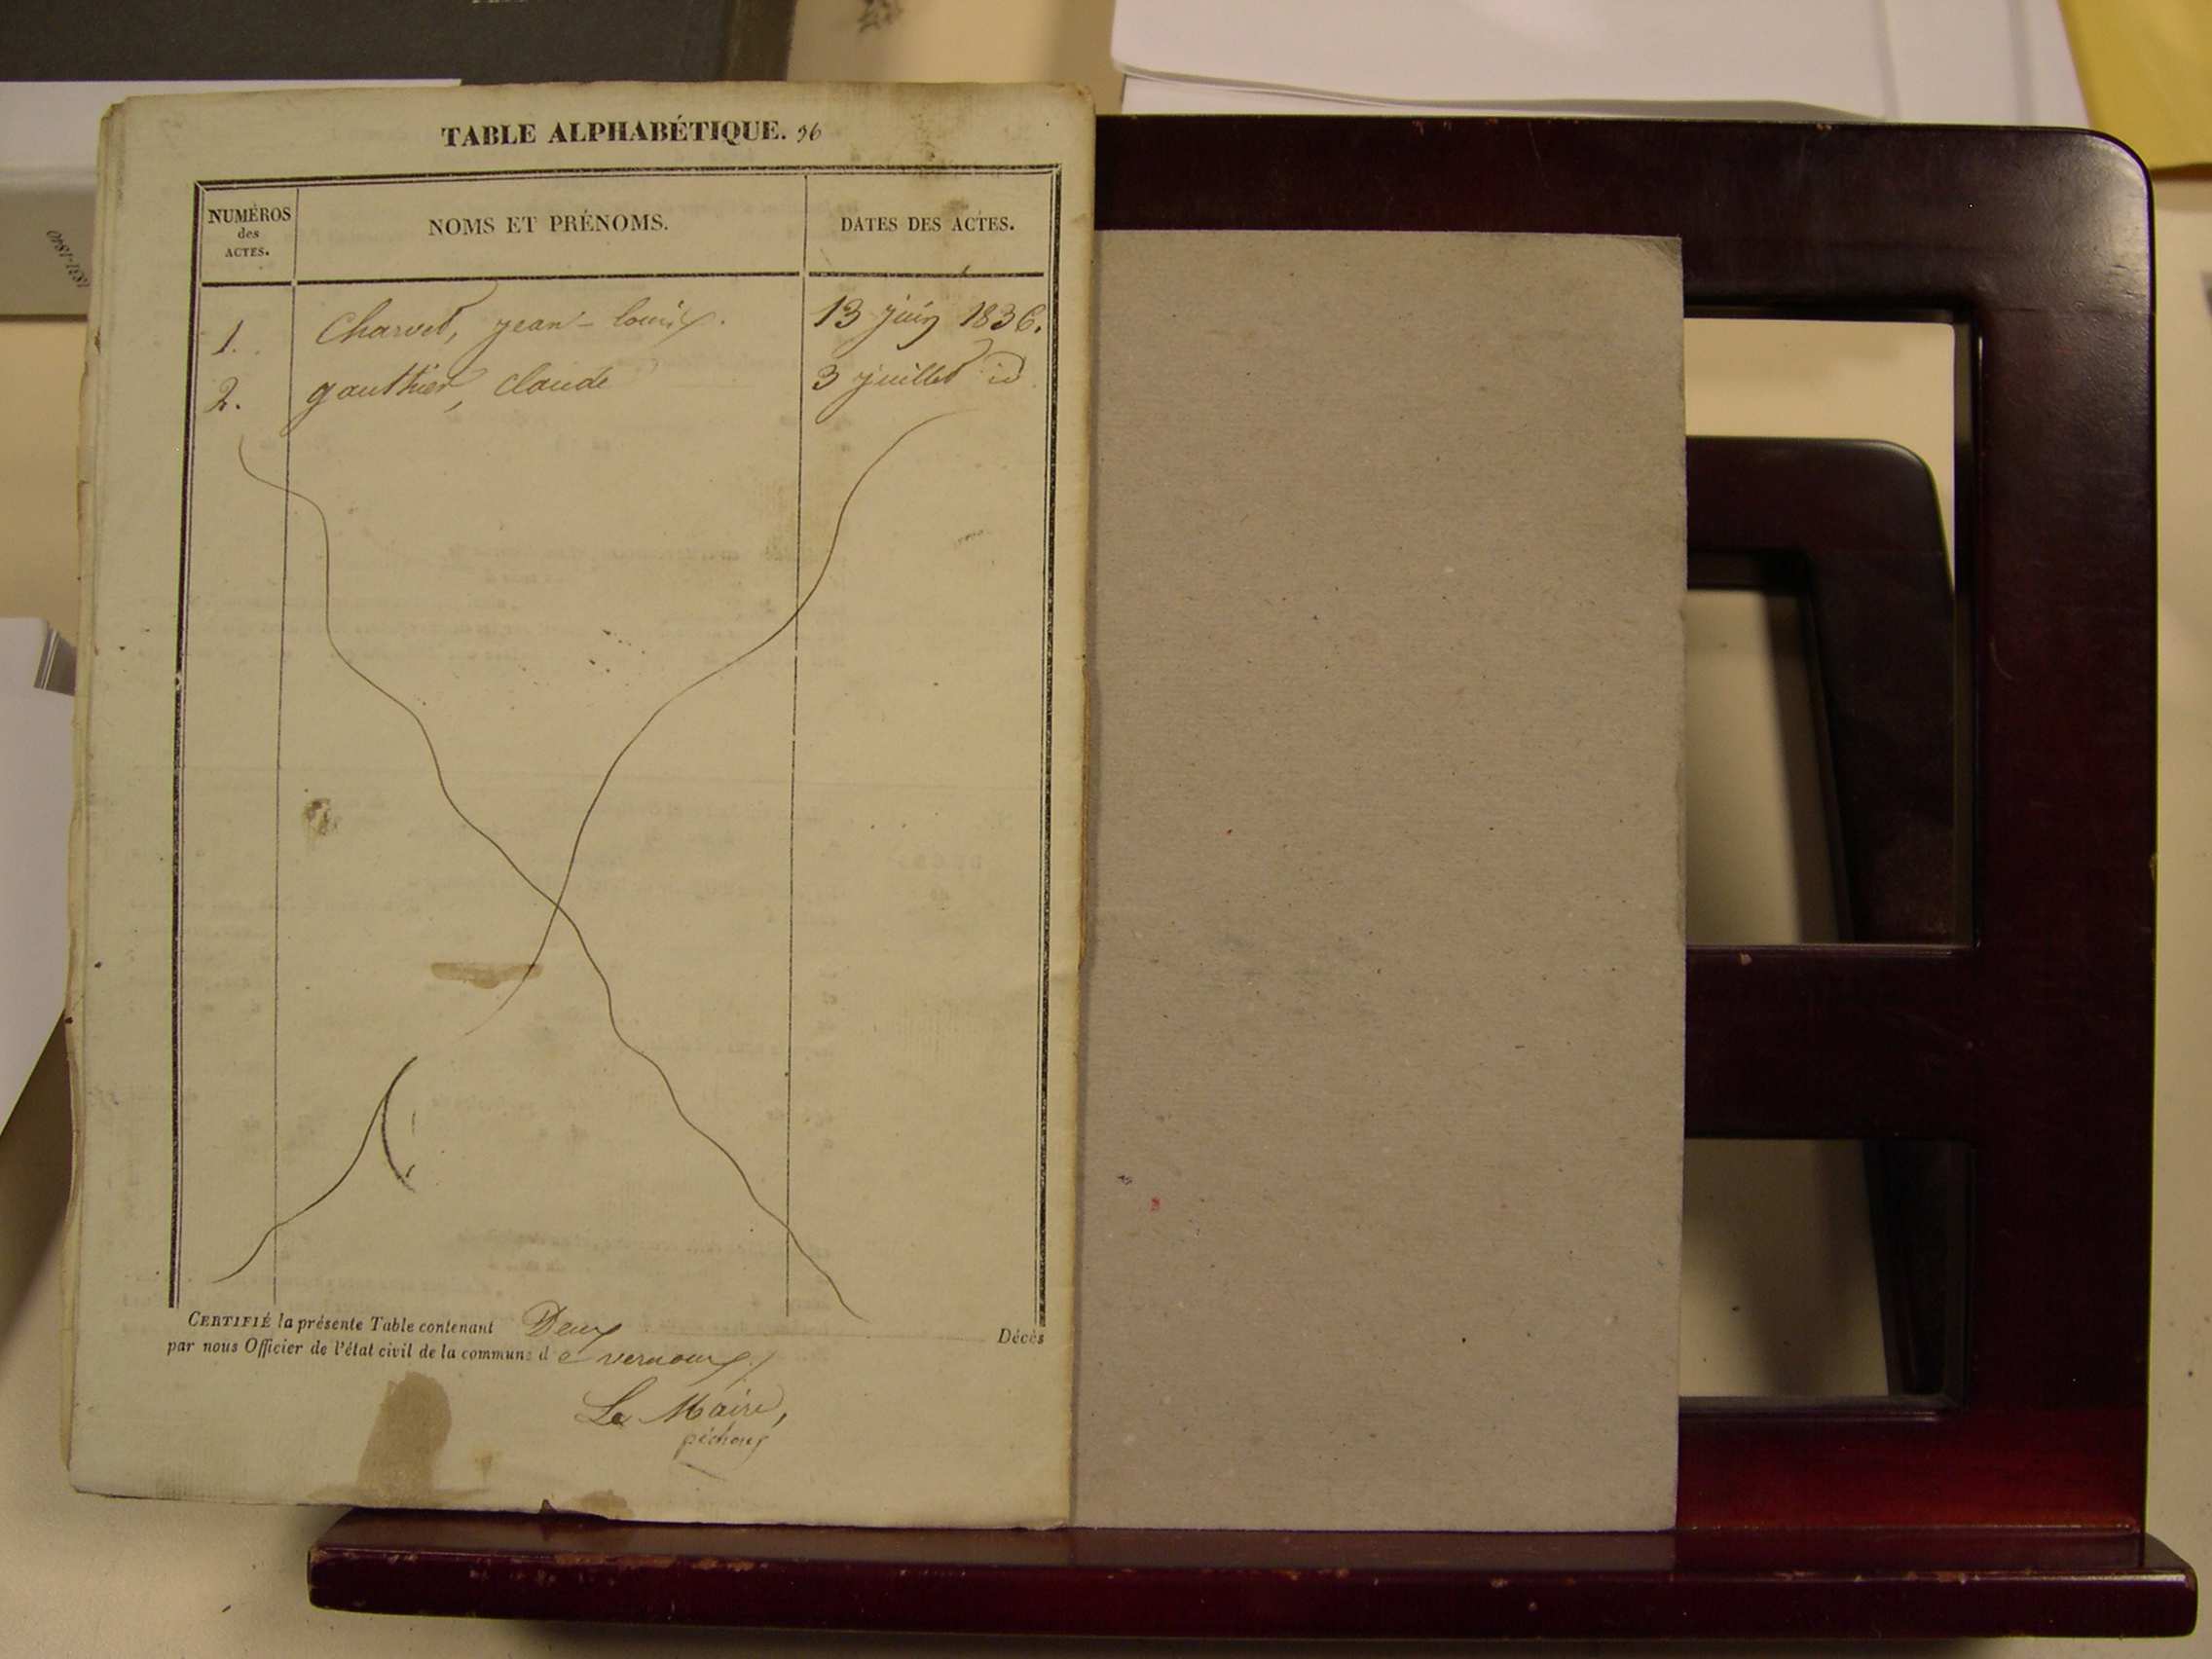 TABLE ALPHABÉTIQUE. 96
NUMÉROS des ACTES.
NOMS ET PRÉNOMS.
DATES DES ACTES.
1. Charvet, jean-louis. 13 juin 1836.
2. gauthier, claude 3 juillet id.
CERTIFIÉ la présente Table contenant Deux Décès
par nous Officier de l'état civil de la commune de vernoux
Le Maire,
1831-1840